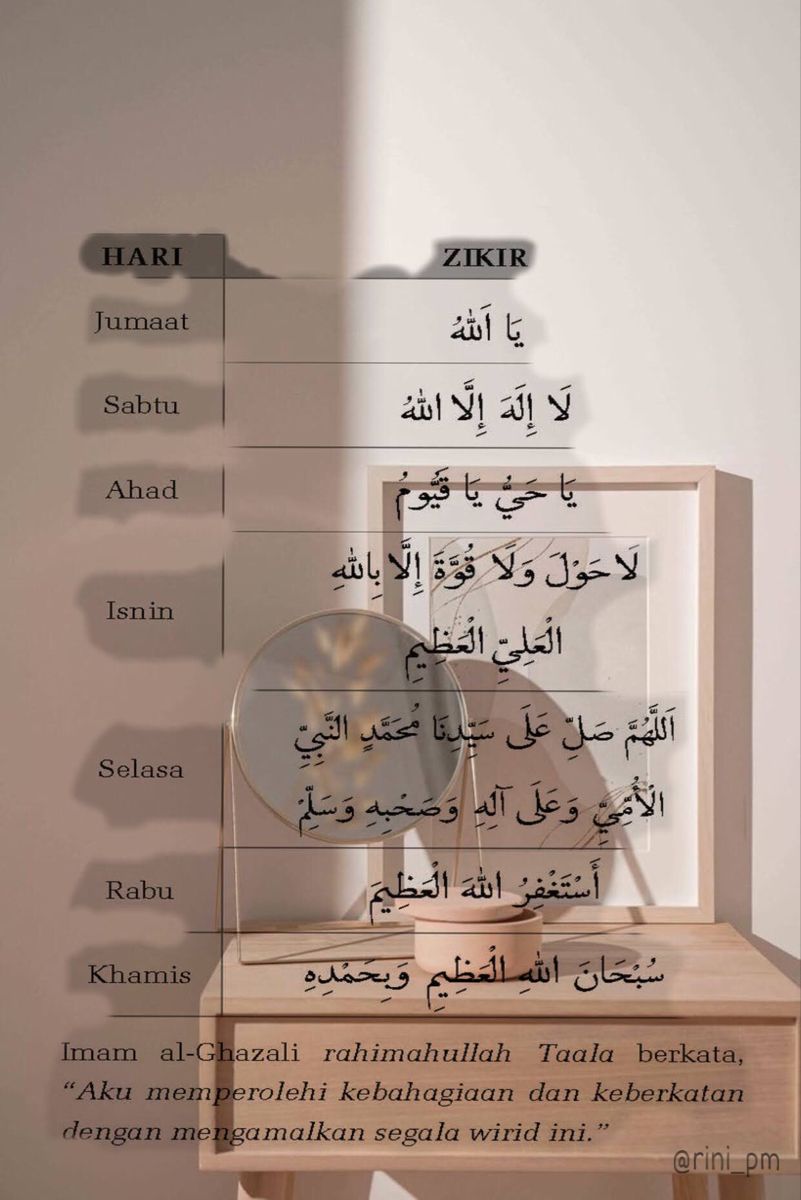 HARI ZIKIR
Jumaat يَا اَللهُ
Sabtu لَا إِلَهَ إِلَّا اللهُ
Ahad يَا حَيُّ يَا قَيُّومُ
لَا حَوْلَ وَلَا قُوَّةَ إِلَّا بِاللهِ
Isnin
الْعَلِيِّ الْعَظِيمِ
اَللَّهُمَّ صَلِّ عَلَى سَيِّدِنَا مُحَمَّدٍ النَّبِيِّ
Selasa
الْأُمِّيِّ وَعَلَى آلِهِ وَصَحْبِهِ وَسَلِّمْ
Rabu أَسْتَغْفِرُ اللهَ الْعَظِيمَ
Khamis سُبْحَانَ اللهِ الْعَظِيمِ وَبِحَمْدِهِ
Imam al-Ghazali rahimahullah Taala berkata,
“Aku memperolehi kebahagiaan dan keberkatan
dengan mengamalkan segala wirid ini.”
@rini_pm